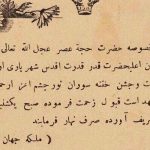 مخصوصه حضرت حجة عصر عجل الله تعالی
اعلیحضرت قدر قدرت اقدس شهریاری ار
ت وجشن ختنه سوران نور چشم اعز ارجمـ
عهد است لهذا قبول زحمت فرموده صبح یکشنبـ
شریف آورده صرف نهار فرمایند
( ملکه جهان